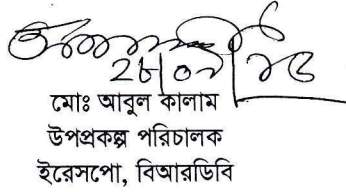 মোঃ আবুল কালাম
উপপ্রকল্প পরিচালক
ইরেসপো, বিআরডিবি